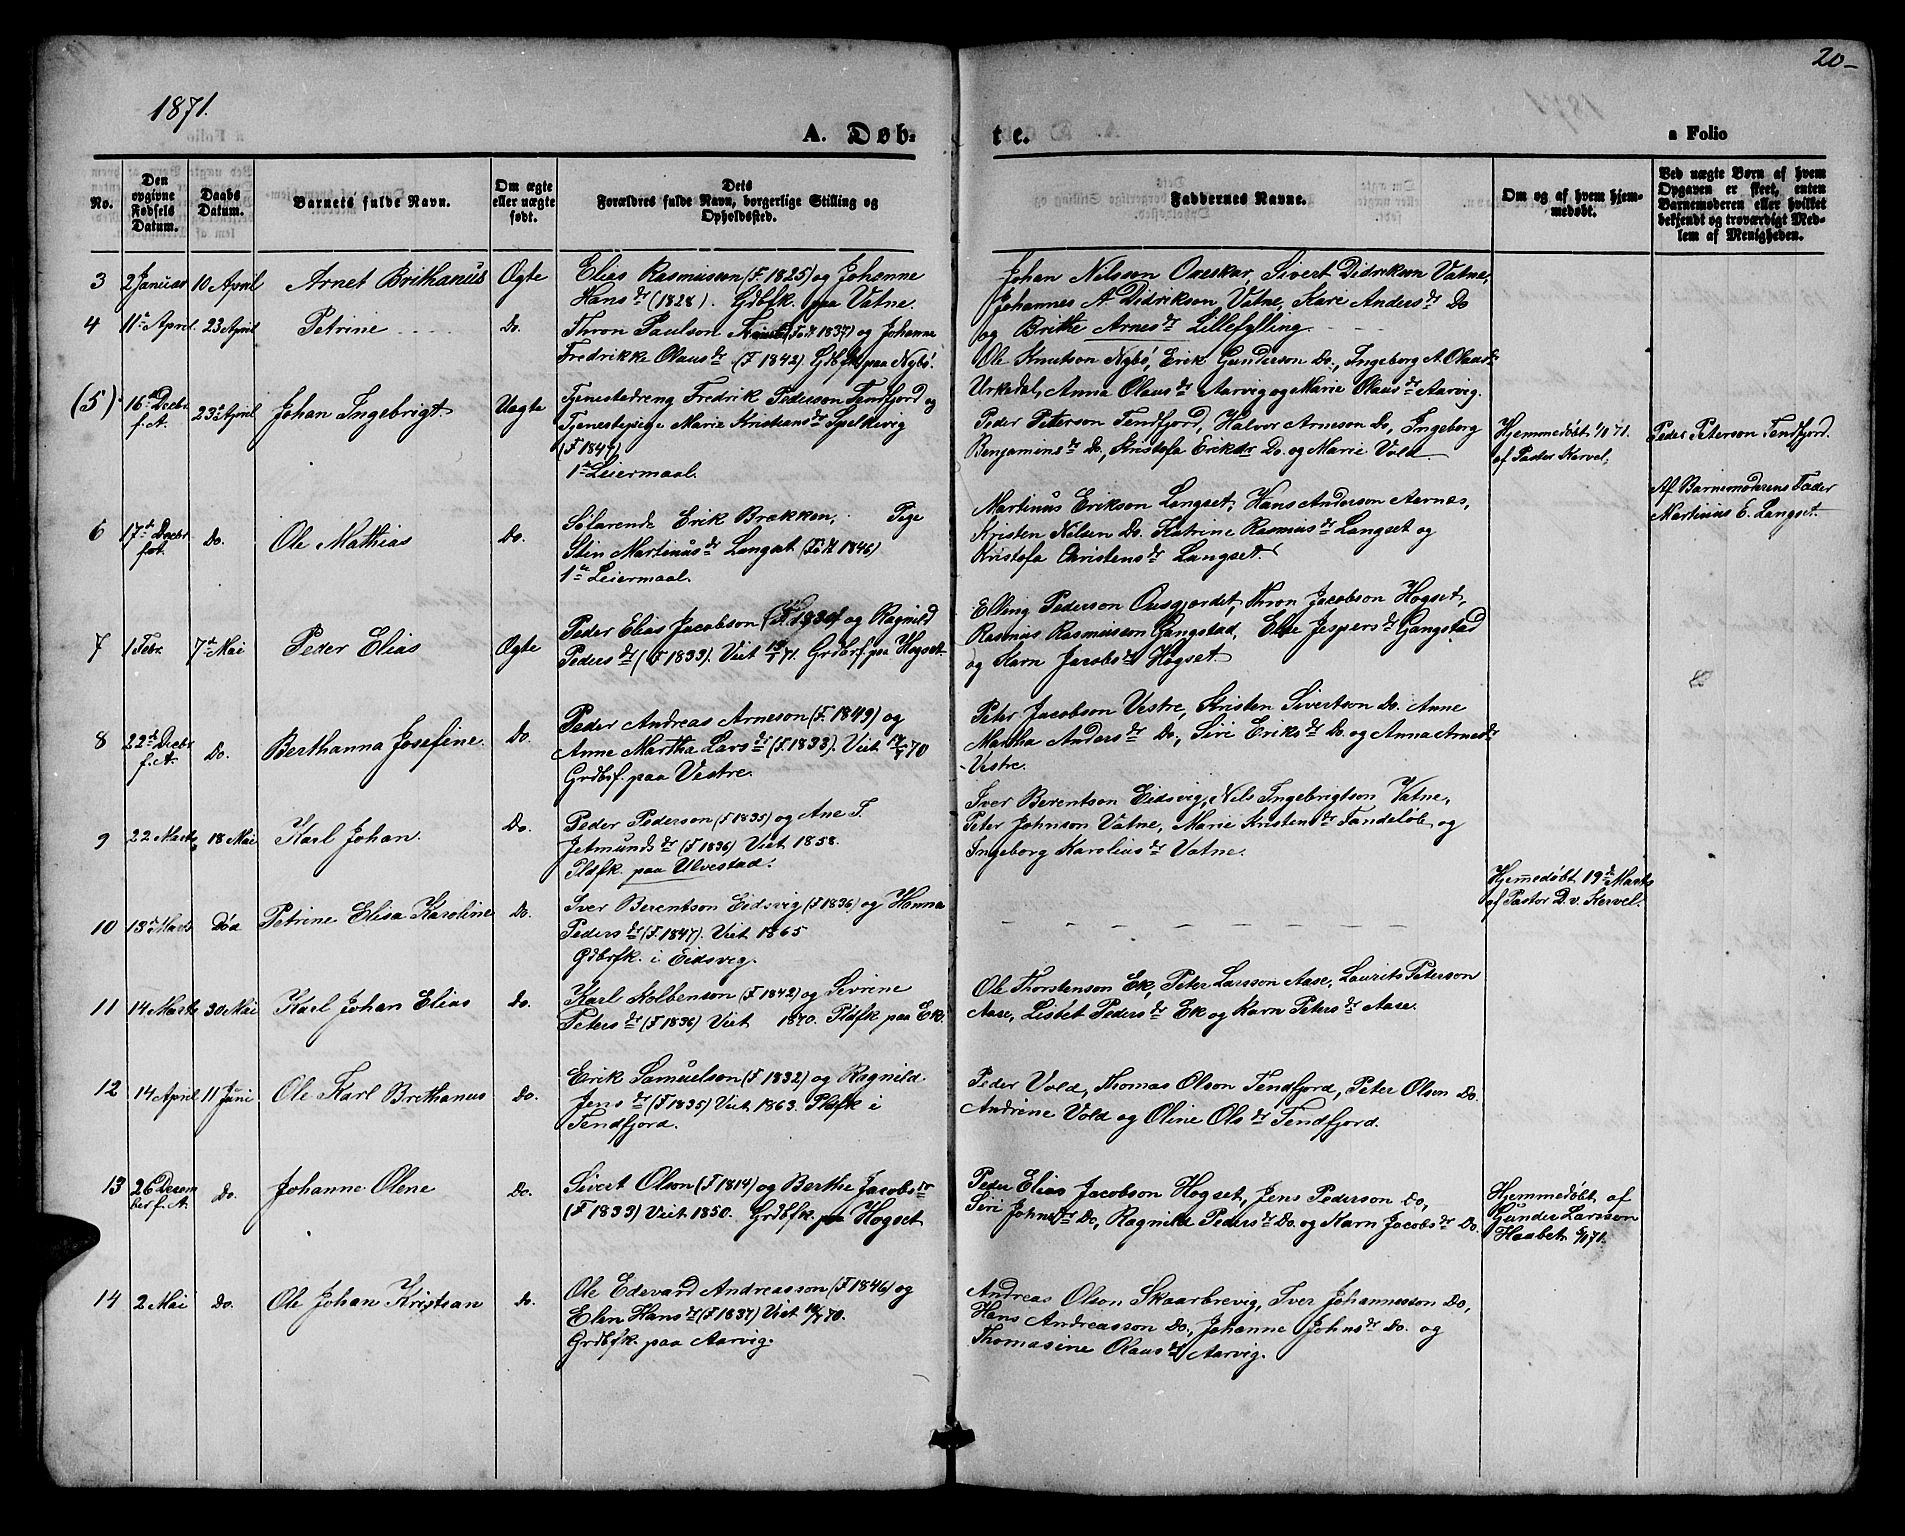 20-
1871.
A. Døb-
te.
a Folio
No.
Den opgivne Fødsels Datum.
Daabs Datum.
Barnets fulde Navn.
Om ægte eller uægte født.
Dets Forældres fulde Navn, borgerlige Stilling og Opholdssted.
Faddernes Navne.
Om og af hvem hjemmedøbt.
Ved uægte Børn af hvem Opgaven er skeet, enten Barnemoderen eller hvilket bekjendt og troværdigt Medlem af Menigheden.
3 2 Januar 10 April Arnet Brithanus Ægte
Elias Rasmusson (F. 1825) og Johanne
Hans dr (1828). Gdbfk. paa Vatne.
Johan Nilsson Oxeskar, Sivert Didrikson Vatne,
Johannes A Didrikson Vatne, Kari Anders dr Do
og Brithe Arnes dr Lillefylling
4 11te April 23 April Petrine Do.
Thron Paulson (Født 1837) og Johanne
Fredrikke Olaus dr (F 1842) Gdbfk paa Nybö.
Ole Knutson Nybö, Erik Gunderson Do., Ingeborg A. Olaus dr
Urkedal, Anna Olaus dr Aarvig og Marie Olaus dr Aarvig.
(5) 16de Decbr f. A. 23de April Johan Ingebrigt Uægte
Tjenestedreng Fredrik Pederson Tendfjord og
Tjenestepige Marie Kristians dr Spelkevig
(F 1849)
1te Leiermaal.
Peder Peterson Tendfjord, Halvor Arneson Do, Ingeborg
Benjamins dr Do., Kristofa Eriks dr Do. og Marie Vold
Hjemmedøbt 1/1 71.
af Pastor Kervel.
Peder Peterson Tendfjord.
6 17de Decbr fot. Do. Ole Mathias Do.
Sølarende Erik Brækken, Pige
Stin Martinus dr Langset (Født 1846)
1te Leiermaal.
Martinus Erikson Langset, Hans Anderson Aernæs,
Kristen Nilsen Do. Katrine Rasmus dr Langset og
Kristofa Christens dr Langset
Af Barnemoderens Fader
Martinus E. Langset.
7 1 Febr. 7de Mai Peder Elias Ægte
Peder Elias Jacobson og Ragnild
Peders dr (F 1833). Viet 71. Grdbrf. paa Hogset
Elling Pederson Oxsgjordet, Thron Jacobson Hogset,
Rasmus Rasmusson Gangstad, Else Jespers dr Gangstad
og Karn Jacobs dr Hogset.
8 22de Decbr f. A. Do. Berthanna Josefine Do.
Peder Andreas Arneson (F. 1849) og
Anne Martha Lars dr (F 1838). Viet 70
Grdbrf. paa Vestre.
Peter Jacobson Vestre, Kristen Sivertson Do. Anne
Martha Anders dr Do., Siri Eriks dr Do og Anna Arnes dr
Vestre.
9 22 Marts 18 Mai Karl Johan. Do.
Peder Pederson (F 1835) og Ane T.
Jetmunds dr (F 1836) Viet 1858.
Pldfk. paa Ulvestad.
Iver Berentson Eidsvig, Nils Ingebrigtson Vatne,
Peter Johnson Vatne, Marie Kristens dr Tandeløb og
Ingeborg Karolius dr Vatne.
10 13de Marts Død Petrine Elisa Karoline Do.
Iver Berentson Eidsvig (F 1836) og Hanna
Peders dr (F. 1847). Viet 1865
Gdbrfk. i Eidsvig.
Hjemmedøbt 19de Marts
af Pastor D. v. Kervel.
11 14 Marts 30 Mai Karl Johan Elias Do.
Karl Kolbenson (F 1842) og Sivrine
Peters dr (F 1836) Viet 1870. Pldfk paa Ek.
Ole Thorstenson Ek, Peter Larsson Aase, Laurits Peterson
Aase, Lisbet Peders dr Ek og Karn Peters dr Aase.
12 14 April 11 Juni Ole Karl Brethanus Do.
Erik Samuelson (F 1832) og Ragnild
Jens dr (F 1835) Viet 1863. Pldfk i
Tendfjord.
Peder Vold, Thomas Olson Tendfjord, Peter Olson Do.
Andrine Vold og Oline Ols dr Tendfjord.
13 26 Decem ber f. A. Do. Johanne Olene Do.
Sivert Olson (F 1814) og Berthe Jacobs dr
(F 1833) Viet 1850. Grdbfk. paa Hogset
Peder Elias Jacobson Hogset, Jens Pederson Do,
Siri Johns dr Do, Ragnilde Peders dr Do. og Karn Jacobs dr Do
Hjemmedøbt af
Gunder Larsson
Haabet 71.
14 2 Mai Do. Ole Johan Kristian Do.
Ole Edevard Andreasson (F 1846) og
Elen Hans dr (F 1837) Viet 70.
Grdbfk. paa Aarvig.
Andreas Olson Skaarbrevig, Iver Johannesson Do,
Hans Andreasson Do., Johanne Johns dr Do. og
Thomasine Olaus dr Aarvig.